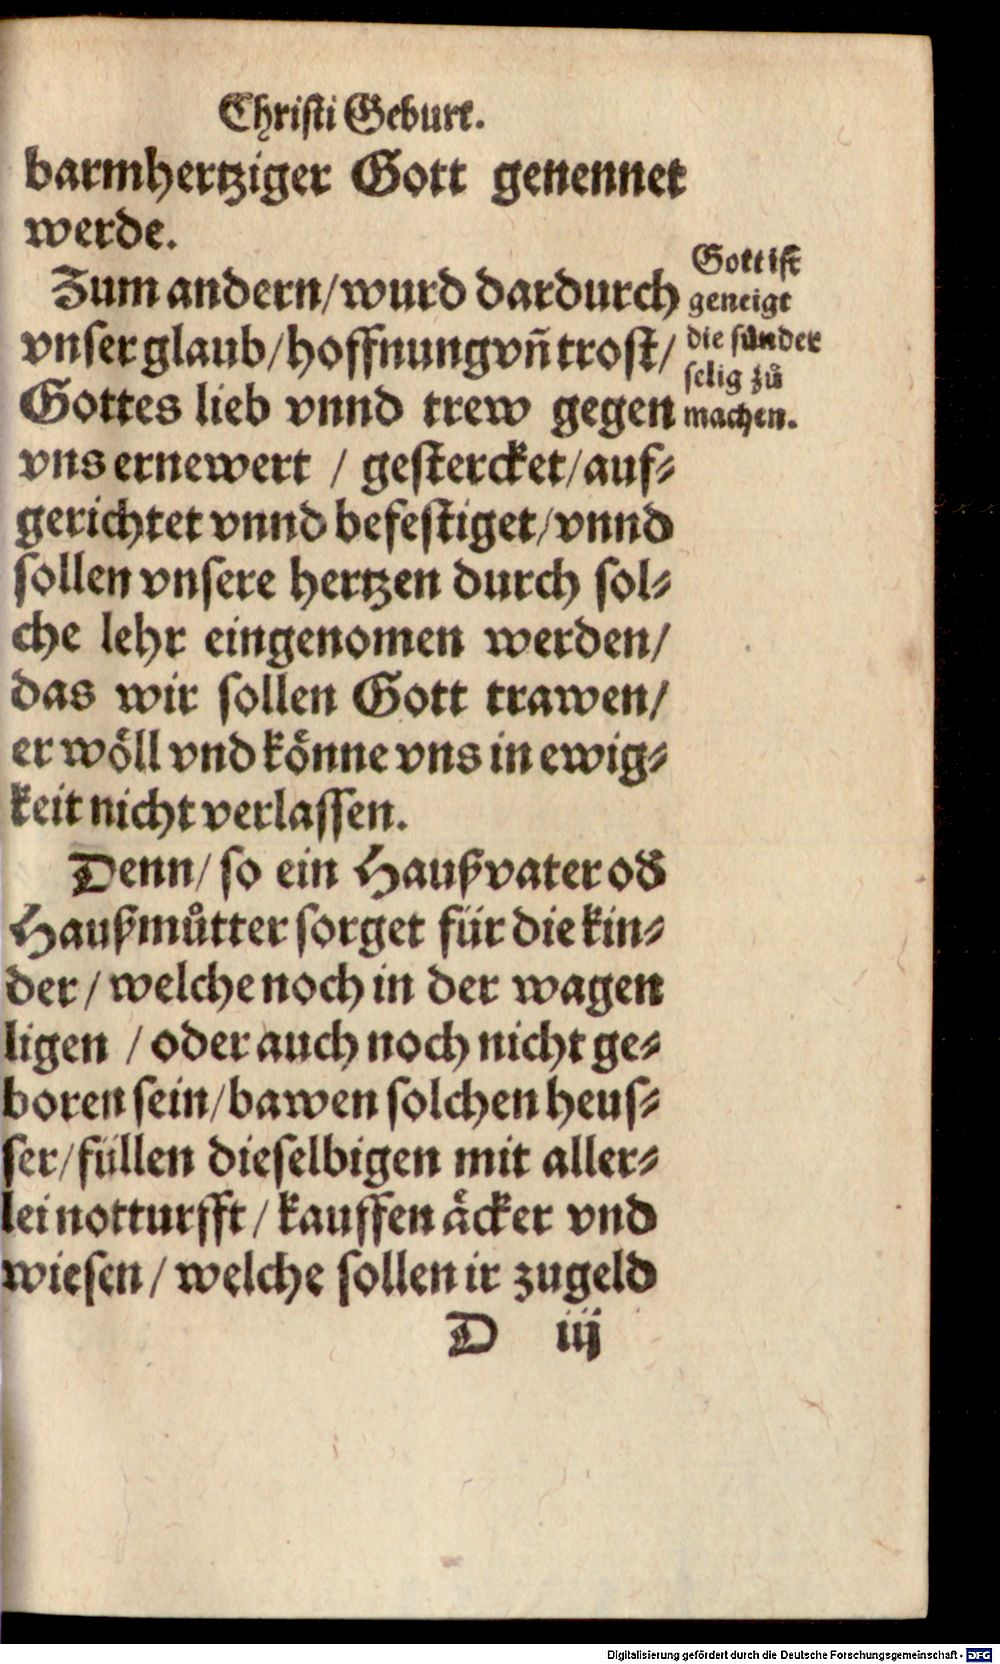 Christi Geburt.
barmhertziger Gott genennet
werde.
Zum andern/wurd dardurch
vnser glaub/hoffnung vñ trost/
Gottes lieb vnnd trew gegen
vns ernewert / gestercket/auf⸗
gerichtet vnnd befestiget/vnnd
sollen vnsere hertzen durch sol⸗
che lehr eingenomen werden/
das wir sollen Gott trawen/
er wöll vnd könne vns in ewig⸗
keit nicht verlassen.
Gott ist
geneigt
die sünder
selig zů
machen.
Denn/ so ein Haußvater oď
Haußmůtter sorget für die kin⸗
der / welche noch in der wagen
ligen / oder auch noch nicht ge⸗
boren sein/bawen solchen heus⸗
ser/füllen dieselbigen mit aller⸗
lei notturfft / kauffen äcker vnd
wiesen / welche sollen ir zugeld
D iij
Digitalisierung gefördert durch die Deutsche Forschungsgemeinschaft - DFG